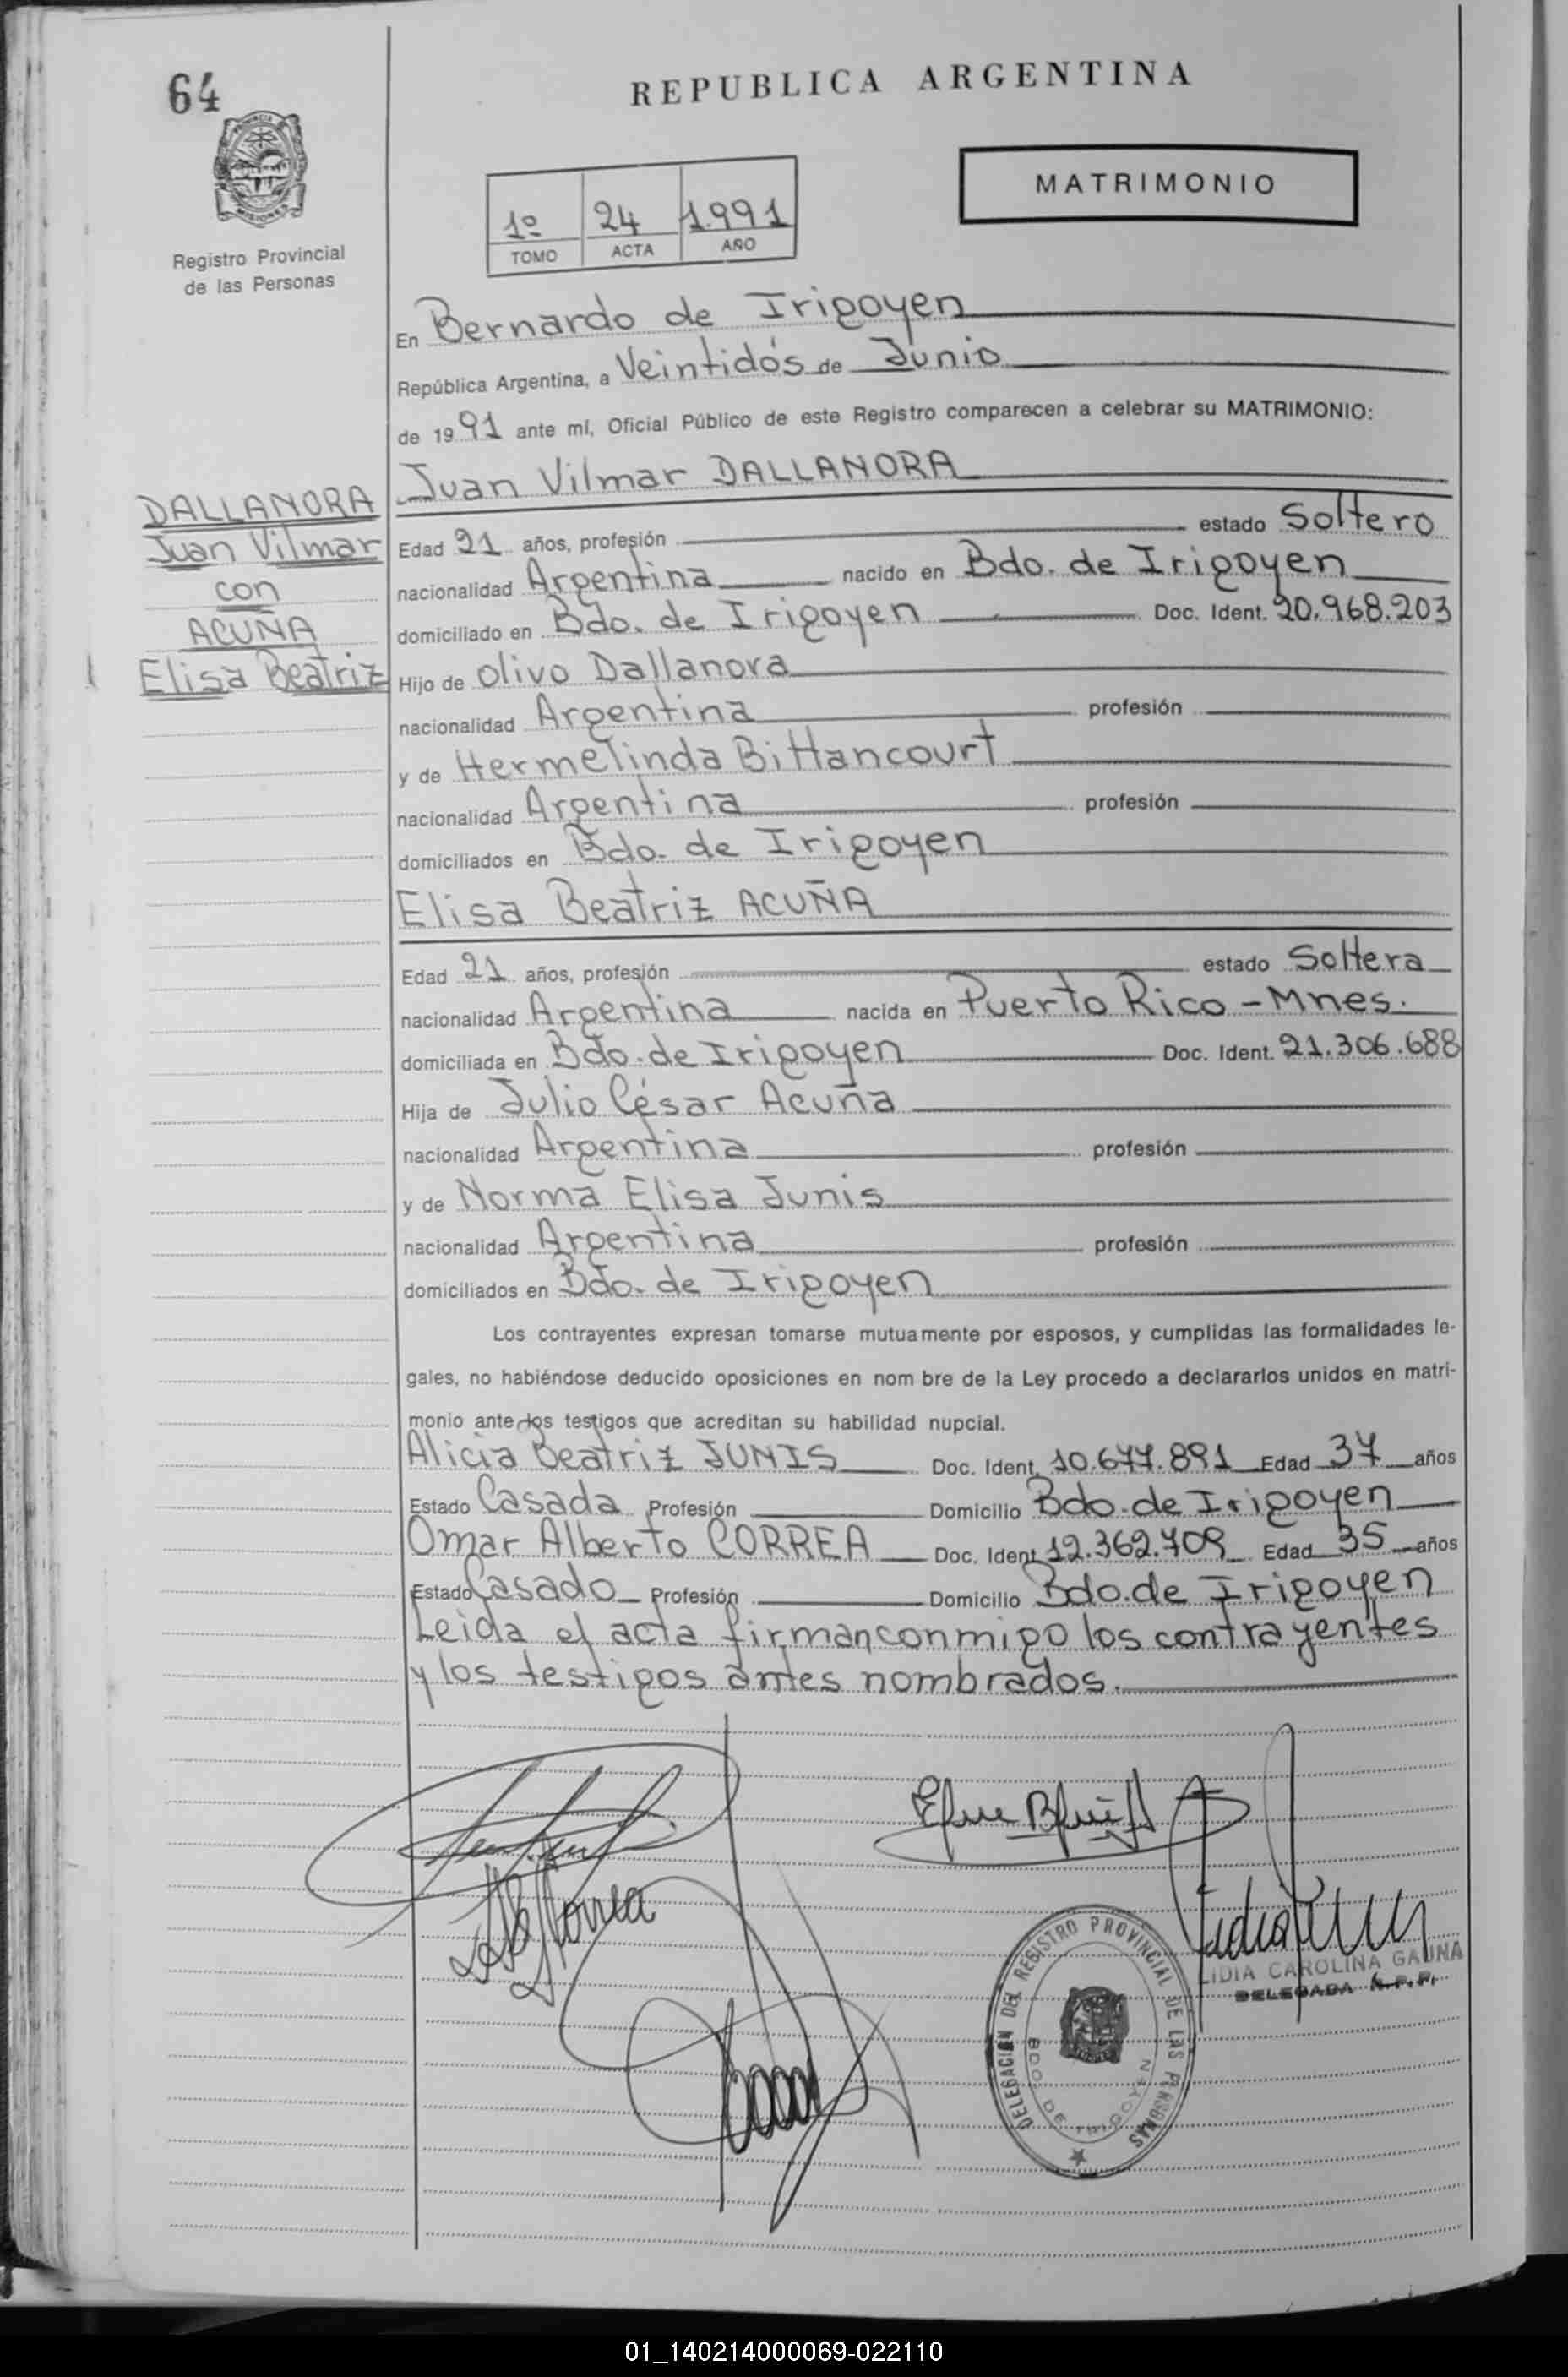 64
REPUBLICA ARGENTINA
PROVINCIA
MISIONES
Registro Provincial
de las Personas
1º 24 1.991
TOMO ACTA AÑO
MATRIMONIO
En Bernardo de Irigoyen
República Argentina, a Veintidós de Junio
de 1991 ante mí, Oficial Público de este Registro comparecen a celebrar su MATRIMONIO:
DALLANORA
Juan Vilmar
con
ACUÑA
Elisa Beatriz
Juan Vilmar DALLANORA
Edad 21 años, profesión estado Soltero
nacionalidad Argentina nacido en Bdo. de Irigoyen
domiciliado en Bdo. de Irigoyen Doc. Ident. 20.968.203
Hijo de Olivo Dallanora
nacionalidad Argentina profesión
y de Hermelinda Bittancourt
nacionalidad Argentina profesión
domiciliados en Bdo. de Irigoyen
Elisa Beatriz ACUÑA
Edad 21 años, profesión estado Soltera
nacionalidad Argentina nacida en Puerto Rico - Mnes.
domiciliada en Bdo. de Irigoyen Doc. Ident. 21.306.688
Hija de Julio César Acuña
nacionalidad Argentina profesión
y de Norma Elisa Junis
nacionalidad Argentina profesión
domiciliados en Bdo. de Irigoyen
Los contrayentes expresan tomarse mutuamente por esposos, y cumplidas las formalidades le-
gales, no habiéndose deducido oposiciones en nom bre de la Ley procedo a declararlos unidos en matri-
monio ante los testigos que acreditan su habilidad nupcial.
Alicia Beatriz JUNIS Doc. Ident. 10.677.891 Edad 37 años
Estado Casada Profesión Domicilio Bdo. de Irigoyen
Omar Alberto CORREA Doc. Ident 12.362.709 Edad 35 años
Estado Casado Profesión Domicilio Bdo. de Irigoyen
Leida el acta firman conmigo los contrayentes
y los testigos antes nombrados.
DELEGACIÓN DEL REGISTRO PROVINCIAL DE LAS PERSONAS
BDO. DE IRIGOYEN
LIDIA CAROLINA GAUNA
DELEGADA R.P.P.
01_140214000069-022110